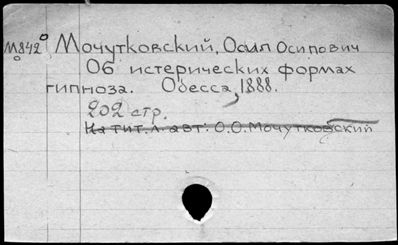 М842 Мочутковский, Осип Осипович
Об истерических формах
гипноза. Одесса, 1888.
202 стр.
На тит. л. авт: О.О. Мочутковский